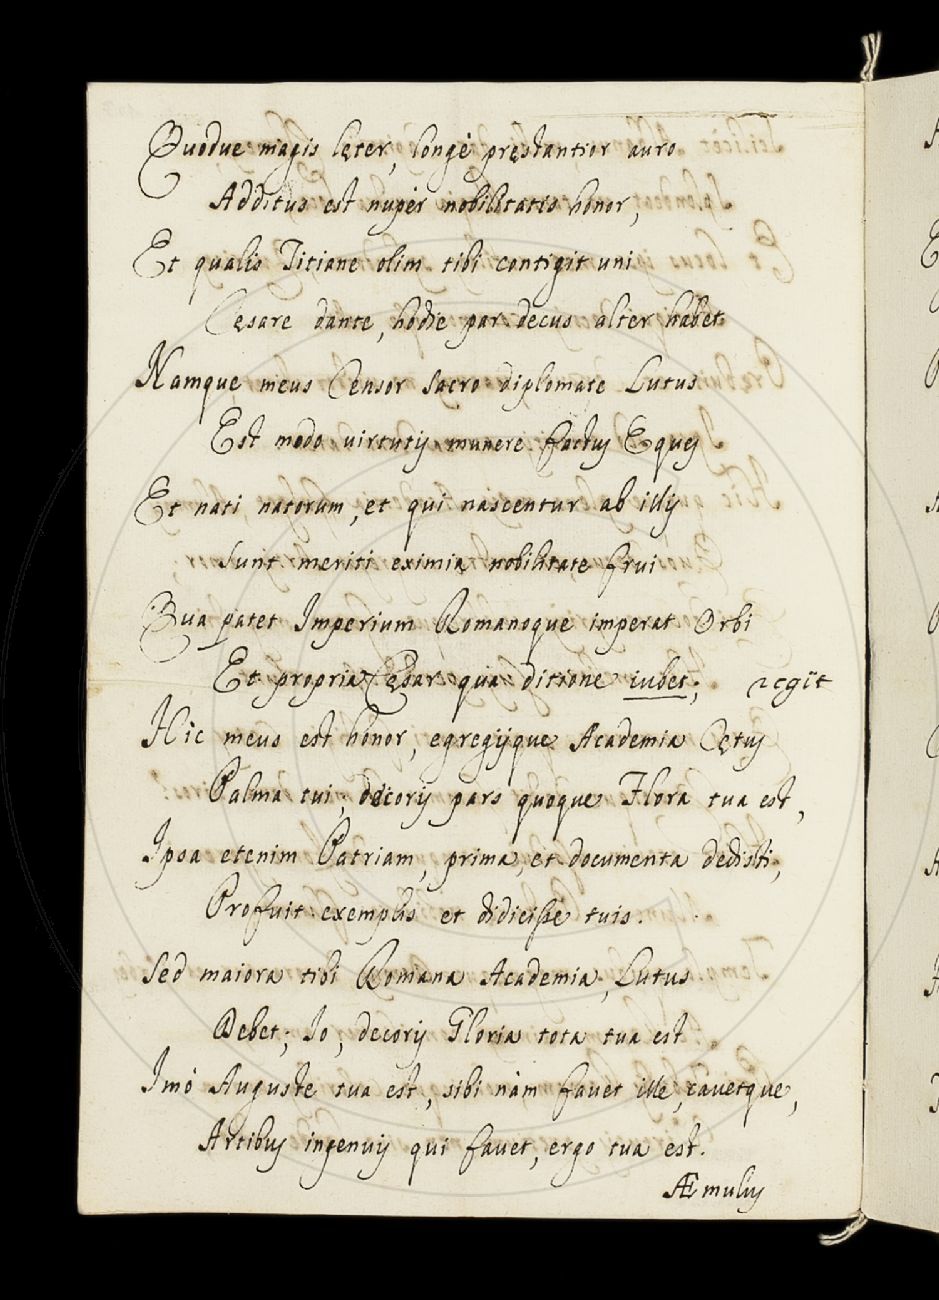 Quodue magis lęter, longè pręstantior auro
Additus est nuper nobilitatis honor,
Et qualis Titiane olim tibi contigit uni
Cęsare dante, hodie par decus alter habet
Namque meus Censor sacro diplomate Lutus
Est modo virtutis munere factus Eques
Et nati natorum, et qui nascentur ab illis
Sunt meriti eximia nobilitate frui
Qua patet Imperium Romanoque imperat Orbi
Et propria Cęsar qua ditione iubet; regit
Hic meus est honor, egregijque Academia Cętus
Palma tui, decoris pars quoque Flora tua est,
Ipsa etenim Patriam, prima, et documenta dedisti,
Profuit exemplis et didicisse tuis.
Sed maiora tibi Romana Academia, Lutus
Debet; Io, decoris Gloria tota tua est
Imò Auguste tua est, sibi nàm fauet ille, cauetque,
Artibus ingenuis qui fauet, ergo tua est.
Æmulus